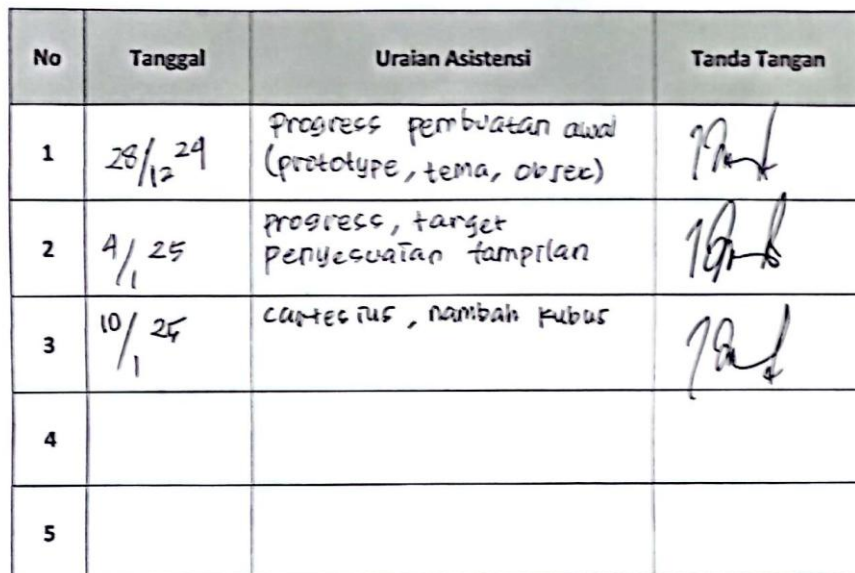 No Tanggal Uraian Asistensi Tanda Tangan
1 28/12 24 Progress pembuatan awal
(prototype, tema, obsek)
2 4/1 25 progress, target
penyesuaian tampilan
3 10/1 25 cartesius, nambah kubus
4
5